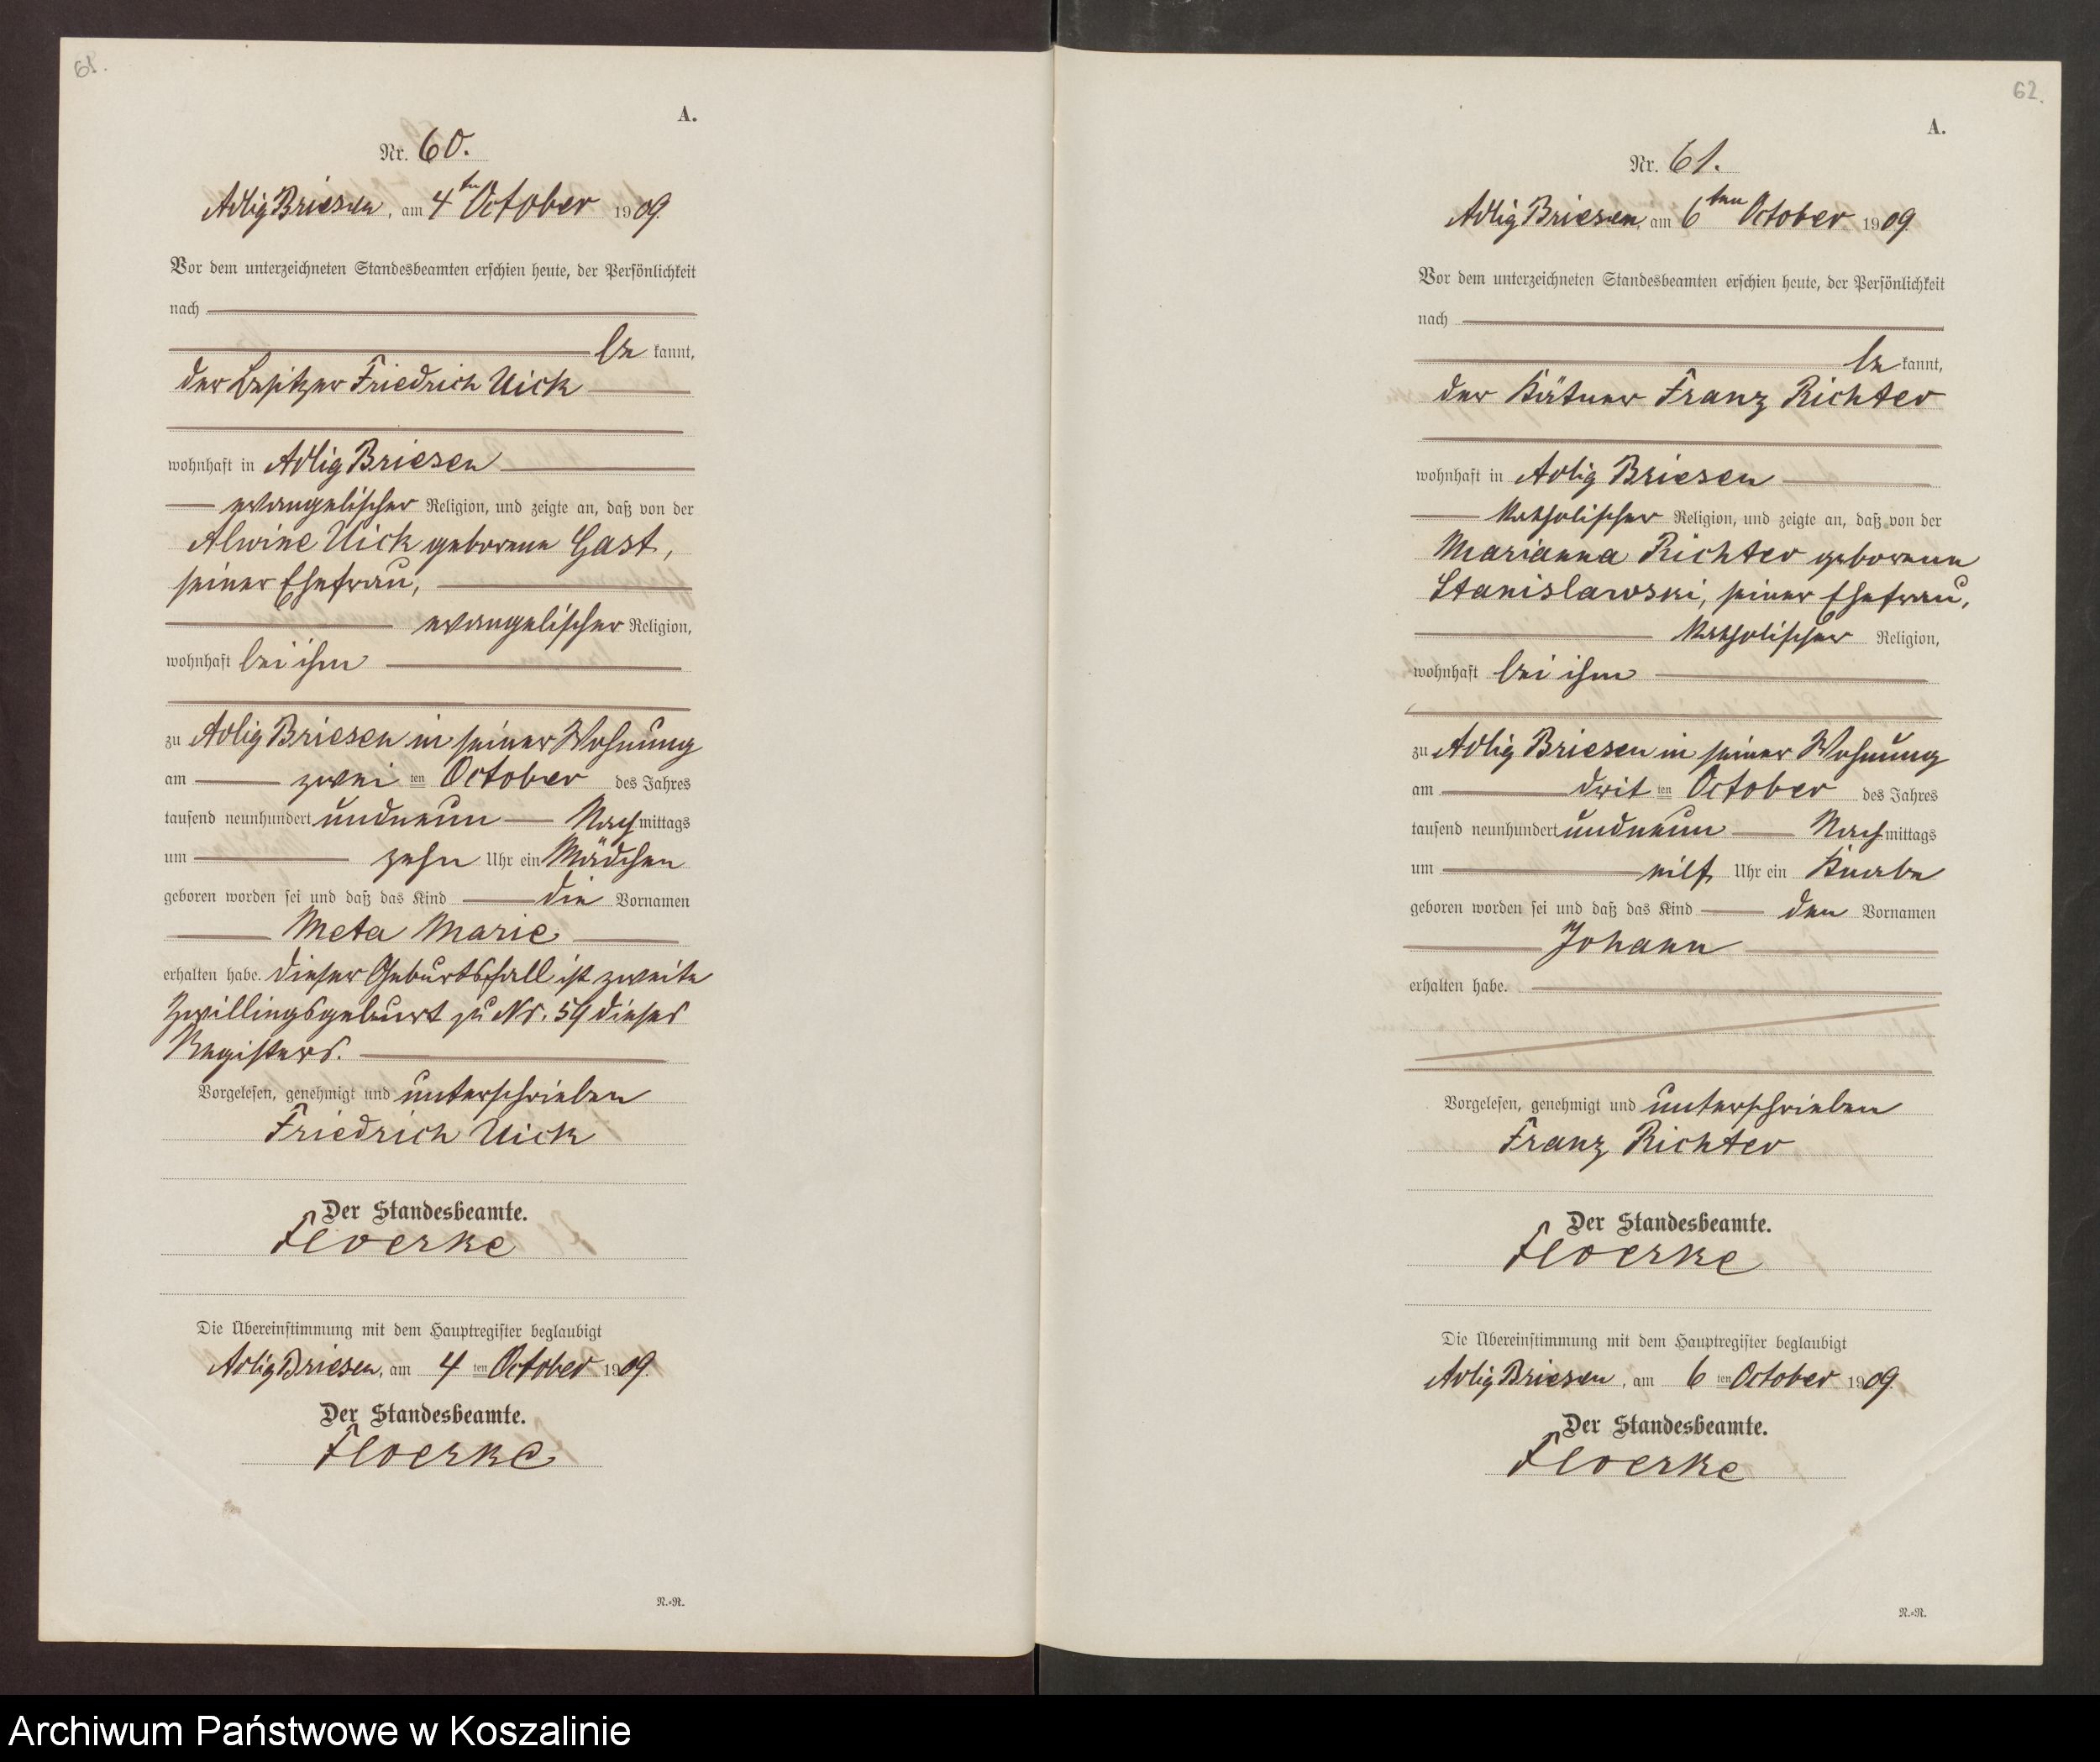 61.
A.
Nr. 60.
Adlig Briesen, am 4ten October 1909.
Vor dem unterzeichneten Standesbeamten erschien heute, der Persönlichkeit
nach
be kannt,
der Besitzer Friedrich Uick
wohnhaft in Adlig Briesen
evangelischer Religion, und zeigte an, daß von der
Alwine Uick geborene Gast,
seiner Ehefrau,
evangelischer Religion,
wohnhaft bei ihm
zu Adlig Briesen in seiner Wohnung
am zwei ten October des Jahres
tausend neunhundert undneun Nach mittags
um zehn Uhr ein Mädchen
geboren worden sei und daß das Kind die Vornamen
Meta Marie
erhalten habe. Dieser Geburtsfall ist zweite
Zwillingsgeburt zu Nr. 59 dieses
Registers.
Vorgelesen, genehmigt und unterschrieben
Friedrich Uick
Der Standesbeamte.
Floerke
Die Übereinstimmung mit dem Hauptregister beglaubigt
Adlig Briesen, am 4 ten October 1909.
Der Standesbeamte.
Floerke
N.-R.
62.
A.
Nr. 61.
Adlig Briesen, am 6ten October 1909.
Vor dem unterzeichneten Standesbeamten erschien heute, der Persönlichkeit
nach
be kannt,
der Kätner Franz Richter
wohnhaft in Adlig Briesen
katholischer Religion, und zeigte an, daß von der
Marianna Richter geborene
Stanislawski, seiner Ehefrau,
katholischer Religion,
wohnhaft bei ihm
zu Adlig Briesen in seiner Wohnung
am drit ten October des Jahres
tausend neunhundert undneun Nach mittags
um eilf Uhr ein Knabe
geboren worden sei und daß das Kind den Vornamen
Johann
erhalten habe.
Vorgelesen, genehmigt und unterschrieben
Franz Richter
Der Standesbeamte.
Floerke
Die Übereinstimmung mit dem Hauptregister beglaubigt
Adlig Briesen, am 6 ten October 1909.
Der Standesbeamte.
Floerke
N.-R.
Archiwum Państwowe w Koszalinie